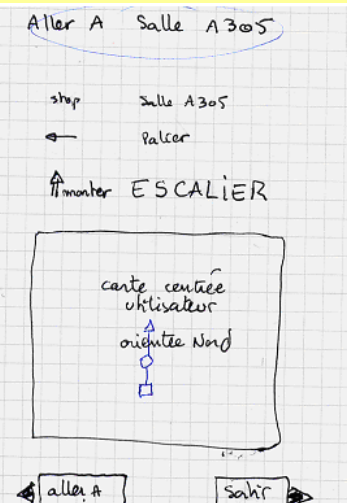 Aller A Salle A305
stop Salle A305
← Palier
↑ monter ESCALIER
carte centrée
utilisateur
orientée Nord
aller A
Sahir